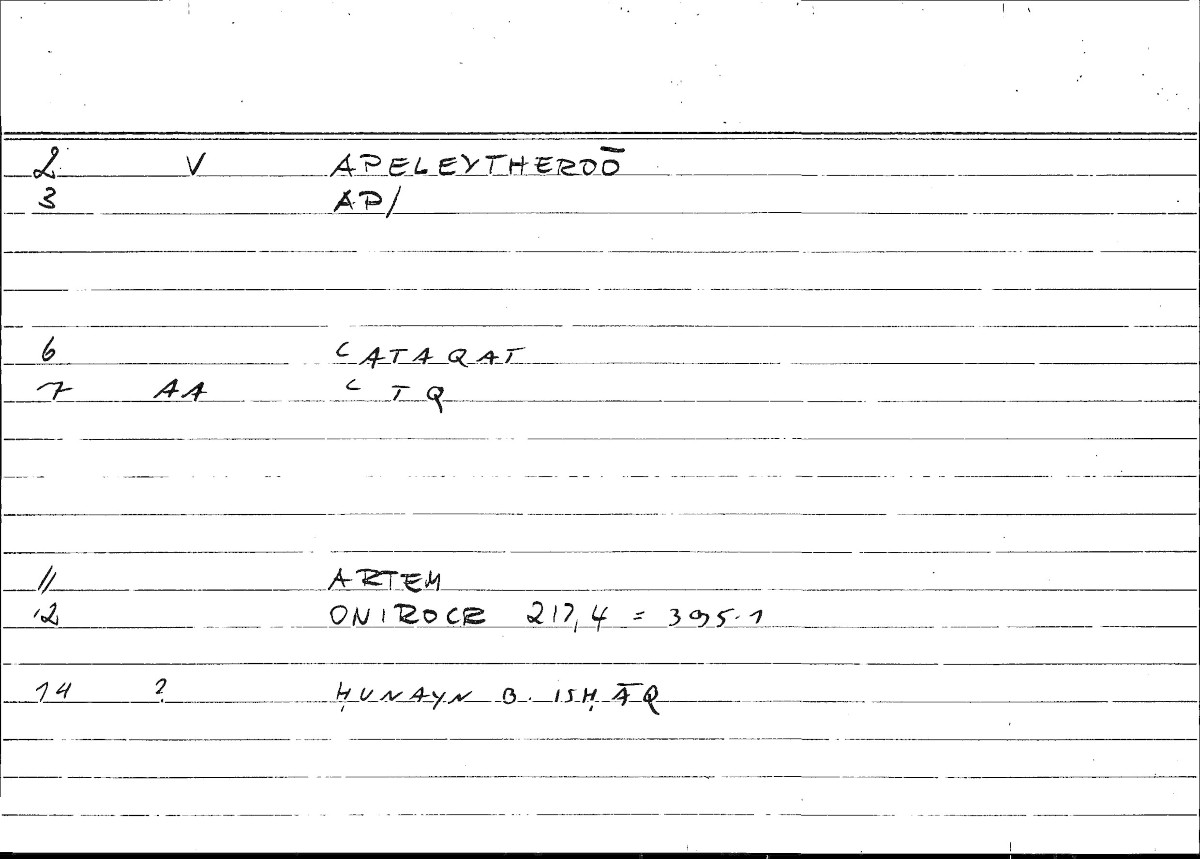 2 V APELEYTHEROŌ
3 AP/
6 ʿATAQAT
7 AA ʿ T Q
11 ARTEM
12 ONIROCR 217,4 = 395.1
14 ? ḤUNAYN B. ISḤĀQ